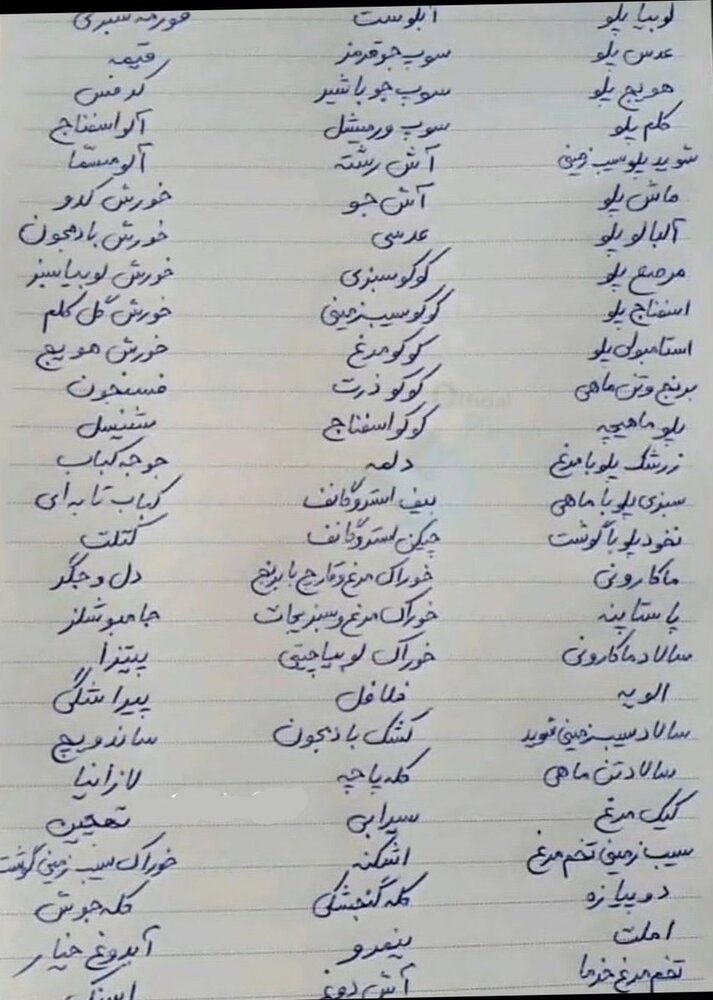 لوبیا پلو
عدس پلو
هویج پلو
کلم پلو
شوید پلو سیب زمینی
ماش پلو
آلبالو پلو
مرصع پلو
اسفناج پلو
استامبولی پلو
برنج و تن ماهی
پلو ماهیچه
زرشک پلو با مرغ
سبزی پلو با ماهی
نخود پلو با گوشت
ماکارونی
پاستا پنه
سالاد ماکارونی
الویه
سالاد سیب زمینی شوید
سالاد تن ماهی
کیک مرغ
سیب زمینی تخم مرغ
دو پیازه
املت
تخم مرغ خرما
آبگوشت
سوپ جو قرمز
سوپ جو با شیر
سوپ ورمیشل
آش رشته
آش جو
عدسی
کوکو سبزی
کوکو سیب زمینی
کوکو مرغ
کوکو ذرت
کوکو اسفناج
دلمه
بیف استروگانف
چیکن استروگانف
خوراک مرغ و قارچ با برنج
خوراک مرغ و سبزیجات
خوراک لوبیا چیتی
فلافل
کشک بادمجون
کله پاچه
سیرابی
اشکنه
کله گنجشکی
نیمرو
آش دوغ
قورمه سبزی
قیمه
کرفس
آلو اسفناج
آلو مسما
خورش کدو
خورش بادمجون
خورش لوبیا سبز
خورش گل کلم
خورش هویج
فسنجون
شنیسل
جوجه کباب
کباب تابه ای
کتلت
دل و جگر
جامبو شلز
پیتزا
پیراشکی
ساندویچ
لازانیا
ته چین
خوراک سیب زمینی گوشت
کله جوش
آبدوغ خیار